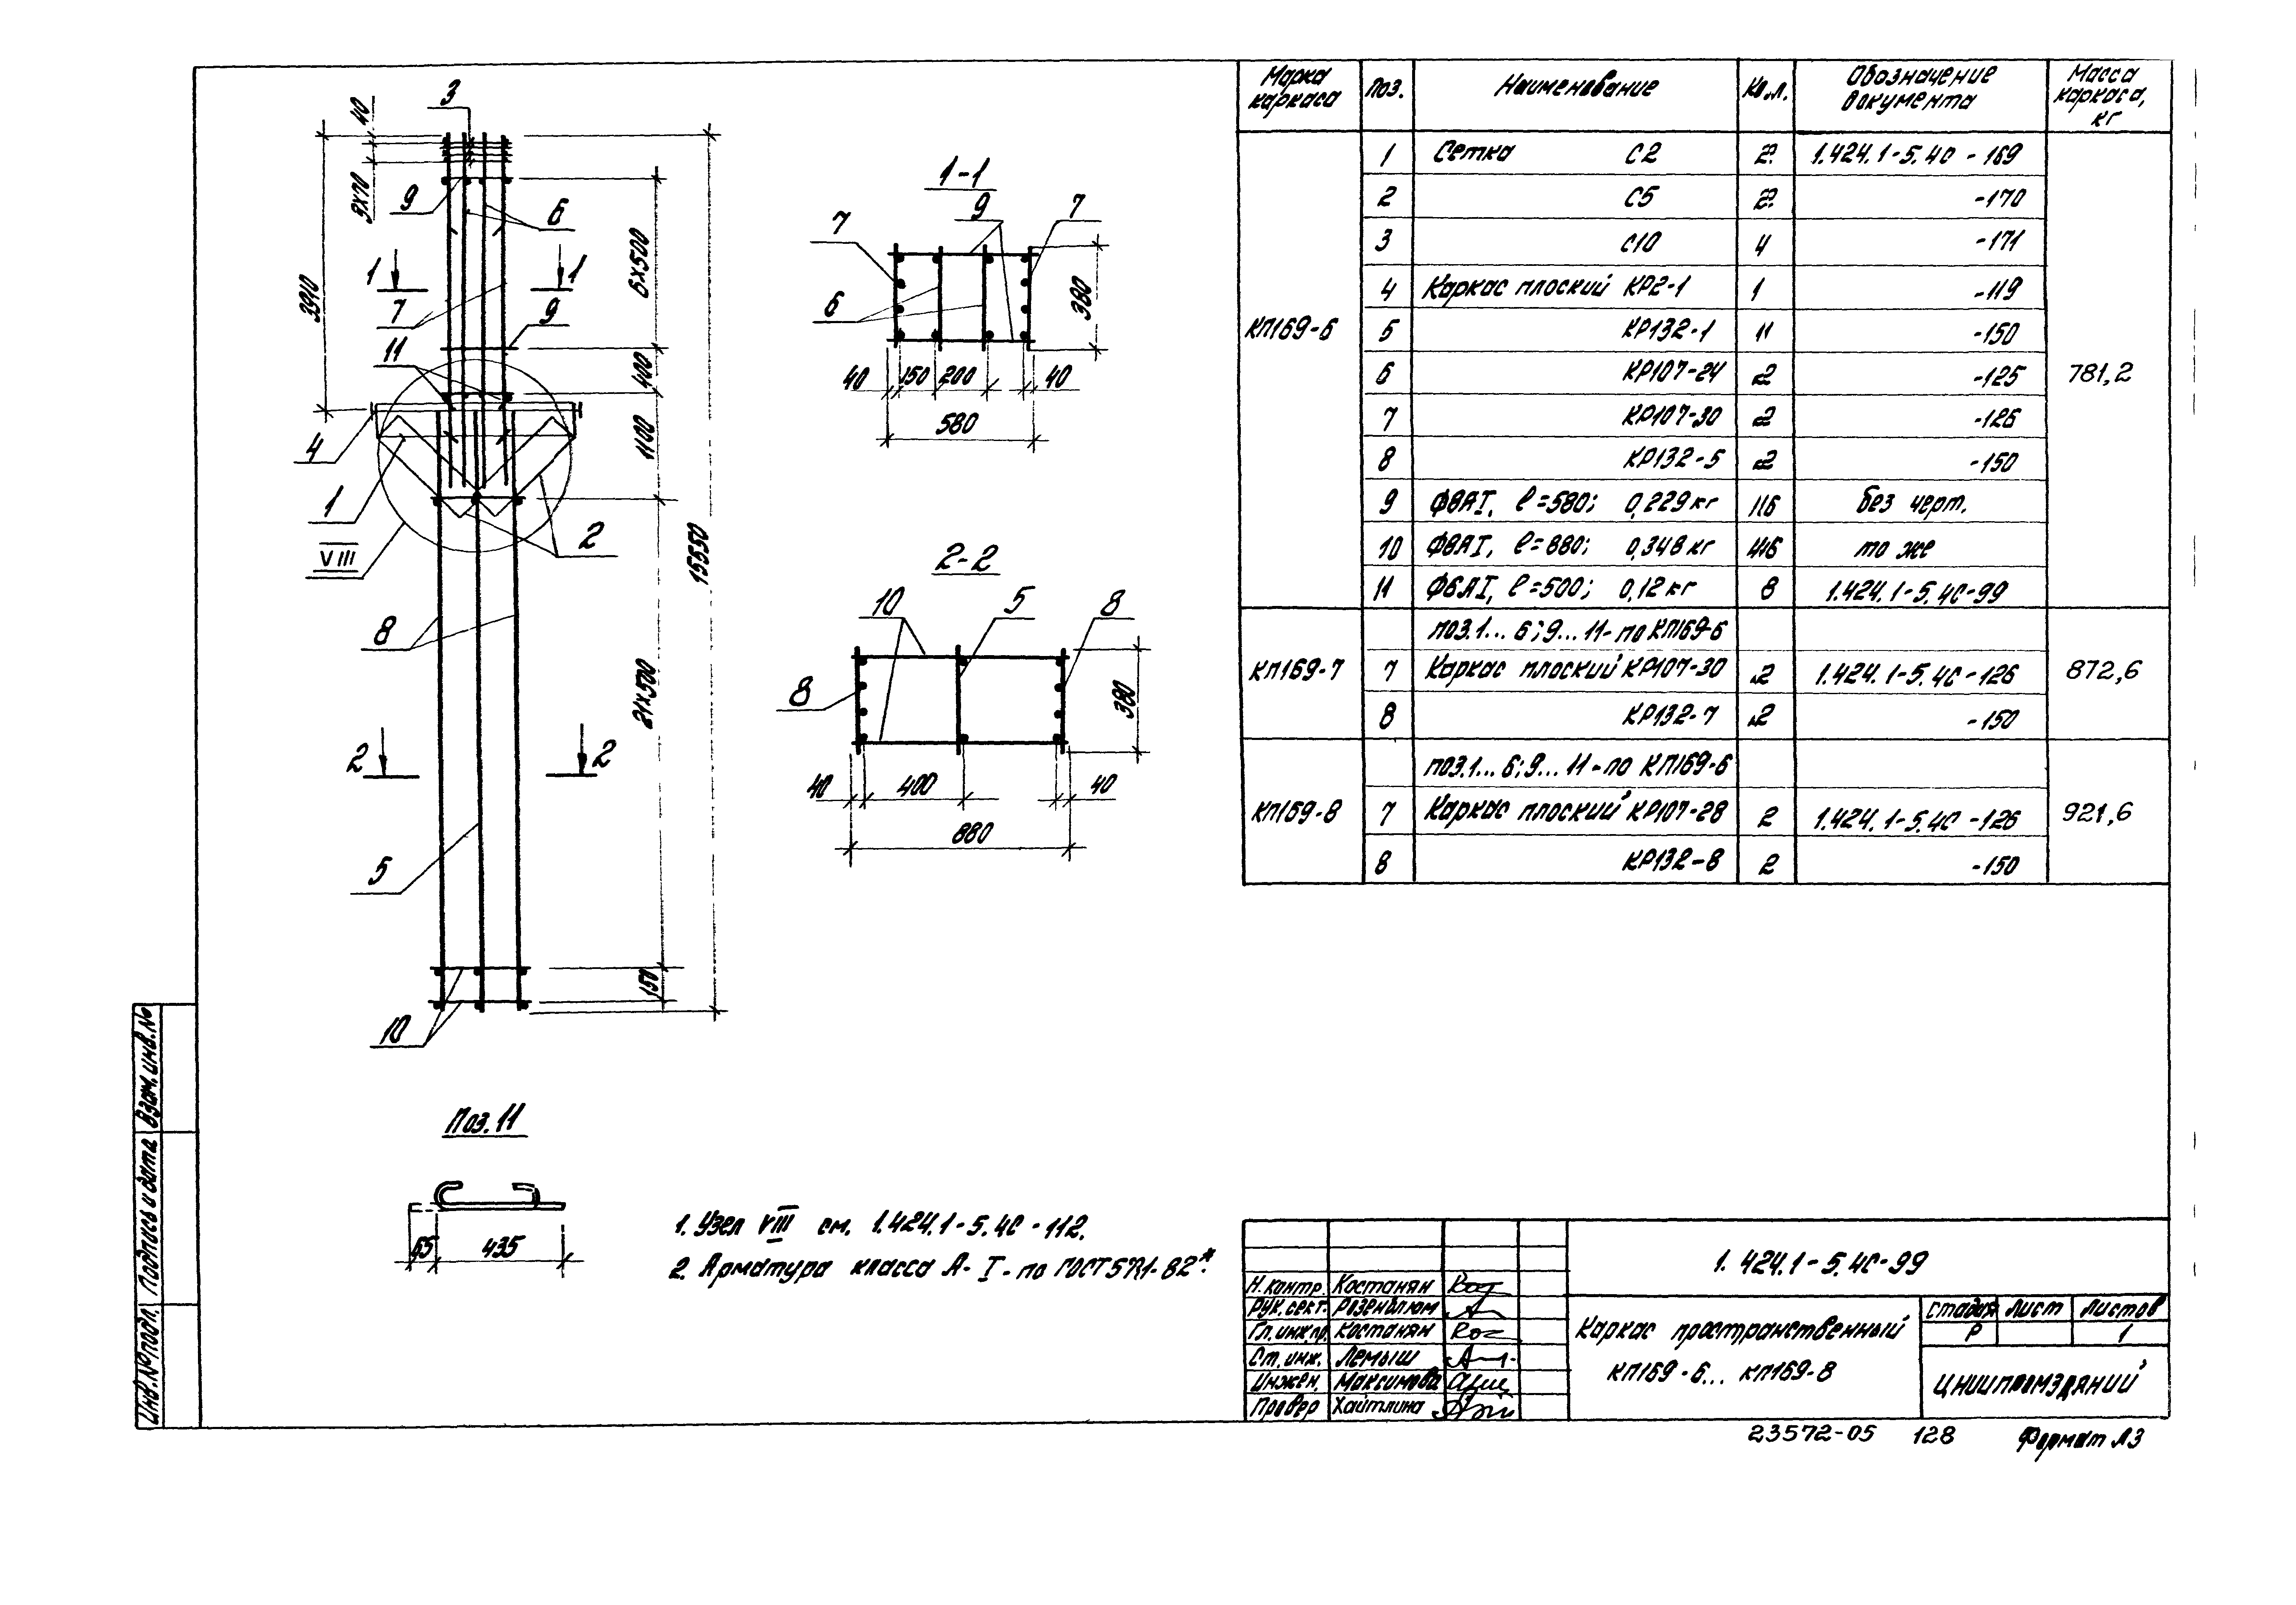 3
40
3х70
9
6
1
1
3390
7
9
6х500
11
400
4
1100
1
2
VIII
15550
8
21х500
2
2
5
150
10
1-1
7
9
7
6
380
40
150
200
40
580
2-2
10
5
8
8
380
40
400
40
880
Поз. 11
65
435
1. Узел VIII см. 1.424.1-5.4С-112.
2. Арматура класса А-I-по ГОСТ 5781-82*.
Марка каркаса | Поз. | Наименование | Кол. | Обозначение документа | Масса каркаса, кг
КП169-6 | 781,2
1 Сетка С2 2 1.424.1-5.4С-169
2 С5 2 -170
3 С10 4 -171
4 Каркас плоский КР2-1 1 -119
5 КР132-1 -150
6 КР107-24 2 -125
7 КР107-30 2 -126
8 КР132-5 2 -150
9 Ф8АI, ℓ=580; 0,229кг без черт.
10 Ф8АI, ℓ=880; 0,348кг то же
11 Ф6АI, ℓ=500; 0,12кг 8 1.424.1-5.4С-99
поз.1...6;9...11-по КП169-6
КП169-7 7 Каркас плоский КР107-30 2 1.424.1-5.4С-126 872,6
8 КР132-7 2 -150
поз.1...6;9...11-по КП169-6
КП169-8 7 Каркас плоский КР107-28 2 1.424.1-5.4С-126 921,6
8 КР132-8 2 -150
1.424.1-5.4С-99
Н.контр. Костанян
Рук.сект. Розенблюм
Гл.инж.пр. Костанян
Ст.инж. Лемыш
Инжен. Максимова
Провер Хайтлина
Каркас пространственный
КП169-6... КП169-8
Стадия Лист Листов
Р 1
ЦНИИпромзданий
23572-05 128 Формат А3
Взам.инв.№
Подпись и дата
Инв.№подл.